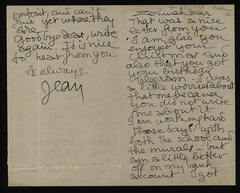 That was a nice
letter from you.
I am glad you
enjoyed your
Christmas and
also that you got
your birthday
telegram. I was
a little worried about
that one because
you did not write
me about it.
I am
these days, with
both the school and
the murals - but
am a little better
off on my bank
account. I got
and can't
find yet where they
are.
Goodbye dear, write
again. It is nice
to hear from you
As always
Jean